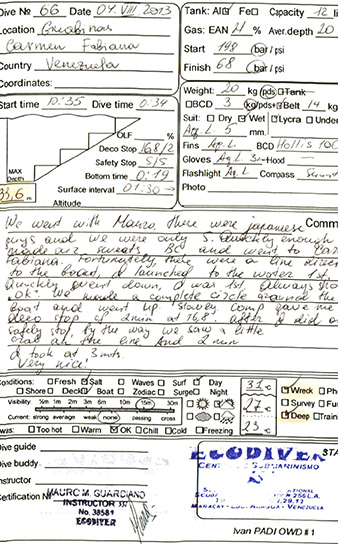 Dive No 66 Date 04.VIII 2013
Location
Carmen Fabiana
Country Venezuela
Coordinates:
Tank: Al Fe Capacity 12 li
Gas: EAN Av.depth 20
Start 198 bar / psi
Finish 68 bar / psi
Start time 10:35 Dive time 0:34
OLF %
Deco Stop 16,8/2
Safety Stop 5/5
Bottom time 0:19
MAX Depth
33,6 m
Surface interval 01:30
Altitude
Weight: 20 kg pds Tank
BCD 3 kg/pds Belt 14
Suit: Dry Wet Lycra Under
Aq L. 5 mm.
Fins Aq L. BCD Hollis 100
Gloves Aq L. 3 Hood
Flashlight Aq L Compass
Photo
We went with there were japanese Comm
guys and we were only 5. Quickly enough
made and went to
Fabiana. Fortunately there were a line
to the board, I launched to the water 1st
Quickly went down, I was 1st. always
OK. We made a complete circle around the
boat and went up slowly. Comp gave me
deco stop of 2min at 16,8, after I did a
safety stop, by the way we saw a little
crab on the line and 2 min
I took at 3 mts.
Very nice!
Conditions: Fresh Salt Waves Surf Day
Shore Deck Boat Zodiac Surge Night
Visibility ½m 1m 2m 3m 6m 10m 15m 30m
Current: strong average weak none passing out
Was: Too hot Warm OK Chill Cold Freezing
31°C
27°C
23°C
Wreck Ph
Survey Fun
Deep Train
Dive guide
Dive buddy
Instructor
Certification №
MAURO M. GUARDIANO
INSTRUCTOR
No. 38581
ECODIVER
ECODIVER STA
CEN SUBMARINISMO
MARACAY - VENEZUELA
Ivan PADI OWD # 1